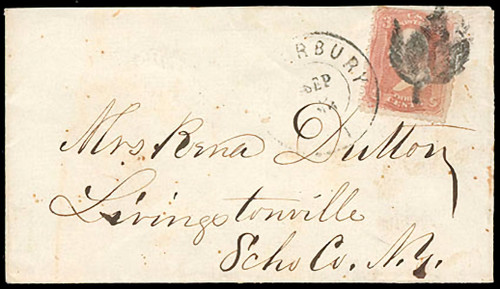 RBURY
SEP
Mrs Rena Dutton
Livingstonville
Scho Co. N.Y.